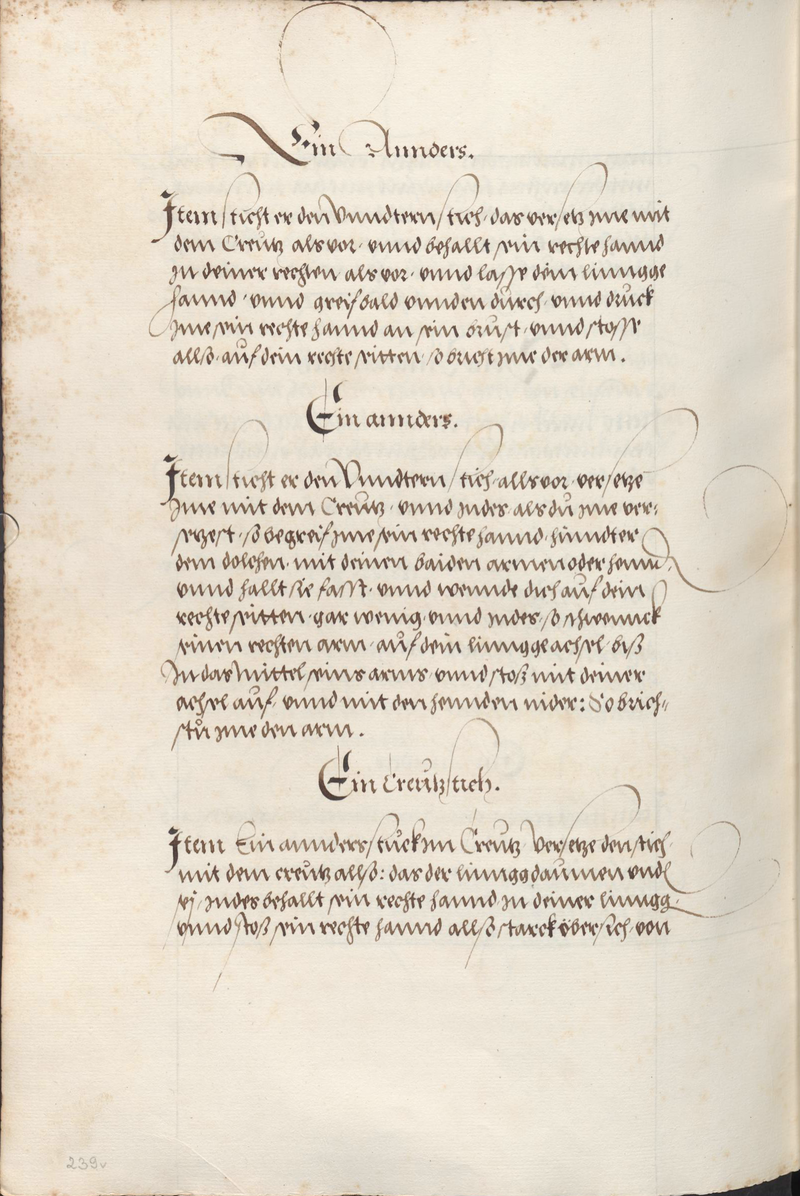 Ein Annders.
Item sticht er den Vnndtern stich, das versetz jme mit
dem Creutz als vor, vnnd behallt sein rechte hannd
jn deiner rechten als vor, vnnd lasse dein linngge
hannd, vnnd greif bald vnnden durch, vnnd druck
jme sein rechte hannd an sein brust, vnnd stosse
allso auf dein rechte seitten, so bricht jme der arm.
Ein annders.
Item sticht er den Vnndtern stich, alls vor, versetze
jme mit dem Creutz, vnnd jndes als du jme ver-
setzest, so begreif jme sein rechte hannd, hinndter
dem dolchen, mit deinen baiden armen oder henn
vnnd hallt sie fasst, vnnd wennde dich auf dein
rechte seitten, gar wenig, vnnd jndes, so schwennck
seinen rechten arm, auf dein linngge achsel, biß
In das Mittel seins arms, vnnd stoß mit deiner
achsel auf, vnnd mit den hennden nider: So brich-
stu jme den arm.
Ein Creutzstich.
Item Ein annders stuck im Creutz, Versetze den stich
mit dem creutz allso: das der lingg daumen vndn
sej, jndes behallt sein rechte hannd, jn deiner linngg
vnnd stoß sein rechte hannd allso starck übersich, von
239v